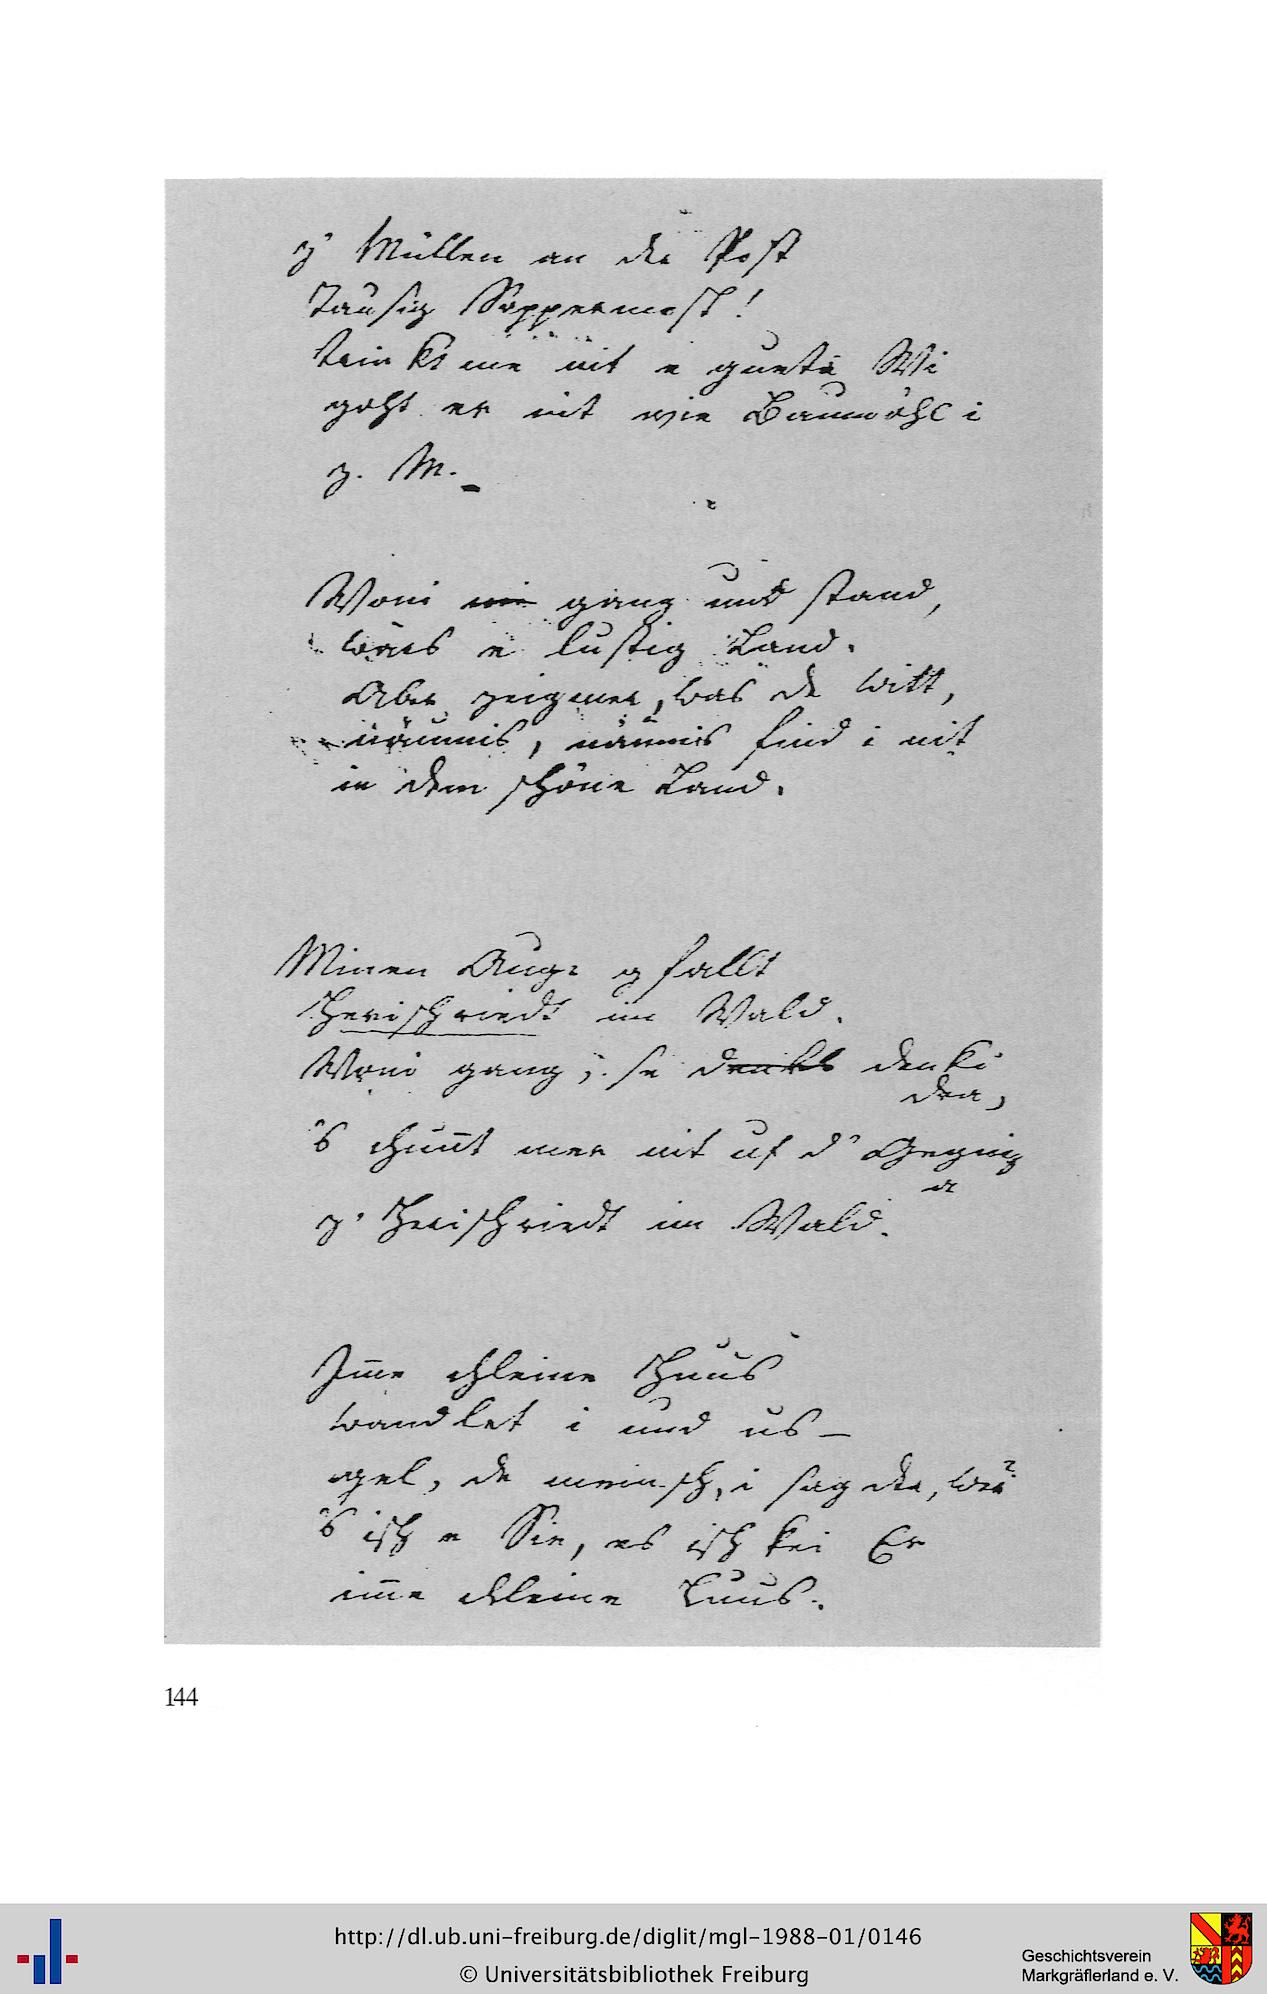 z' Müllen an der Post
Tausig Sappermost!
trinkt me nit e guete Wi
goht er nit wie Baumöhl i
z. M.
Woni gang und stand,
wärs e lustig Land.
Aber zeig mer, was de witt,
näumis, näumis find i nit
in dem schöne Land.
Minen Auge gfallt
Herischriedt im Wald.
Woni gang, se denks denki
dra,
's chunt mer nit uf d' Gegnig
a
z' Herischriedt im Wald.
Imme chleine Huus
wandlet i und us –
gel, de meinsch, i sag der, wer?
's isch e Sie, es isch kei Er
imme chleine Huus.
144
http://dl.ub.uni-freiburg.de/diglit/mgl-1988-01/0146
© Universitätsbibliothek Freiburg
Geschichtsverein
Markgräflerland e. V.